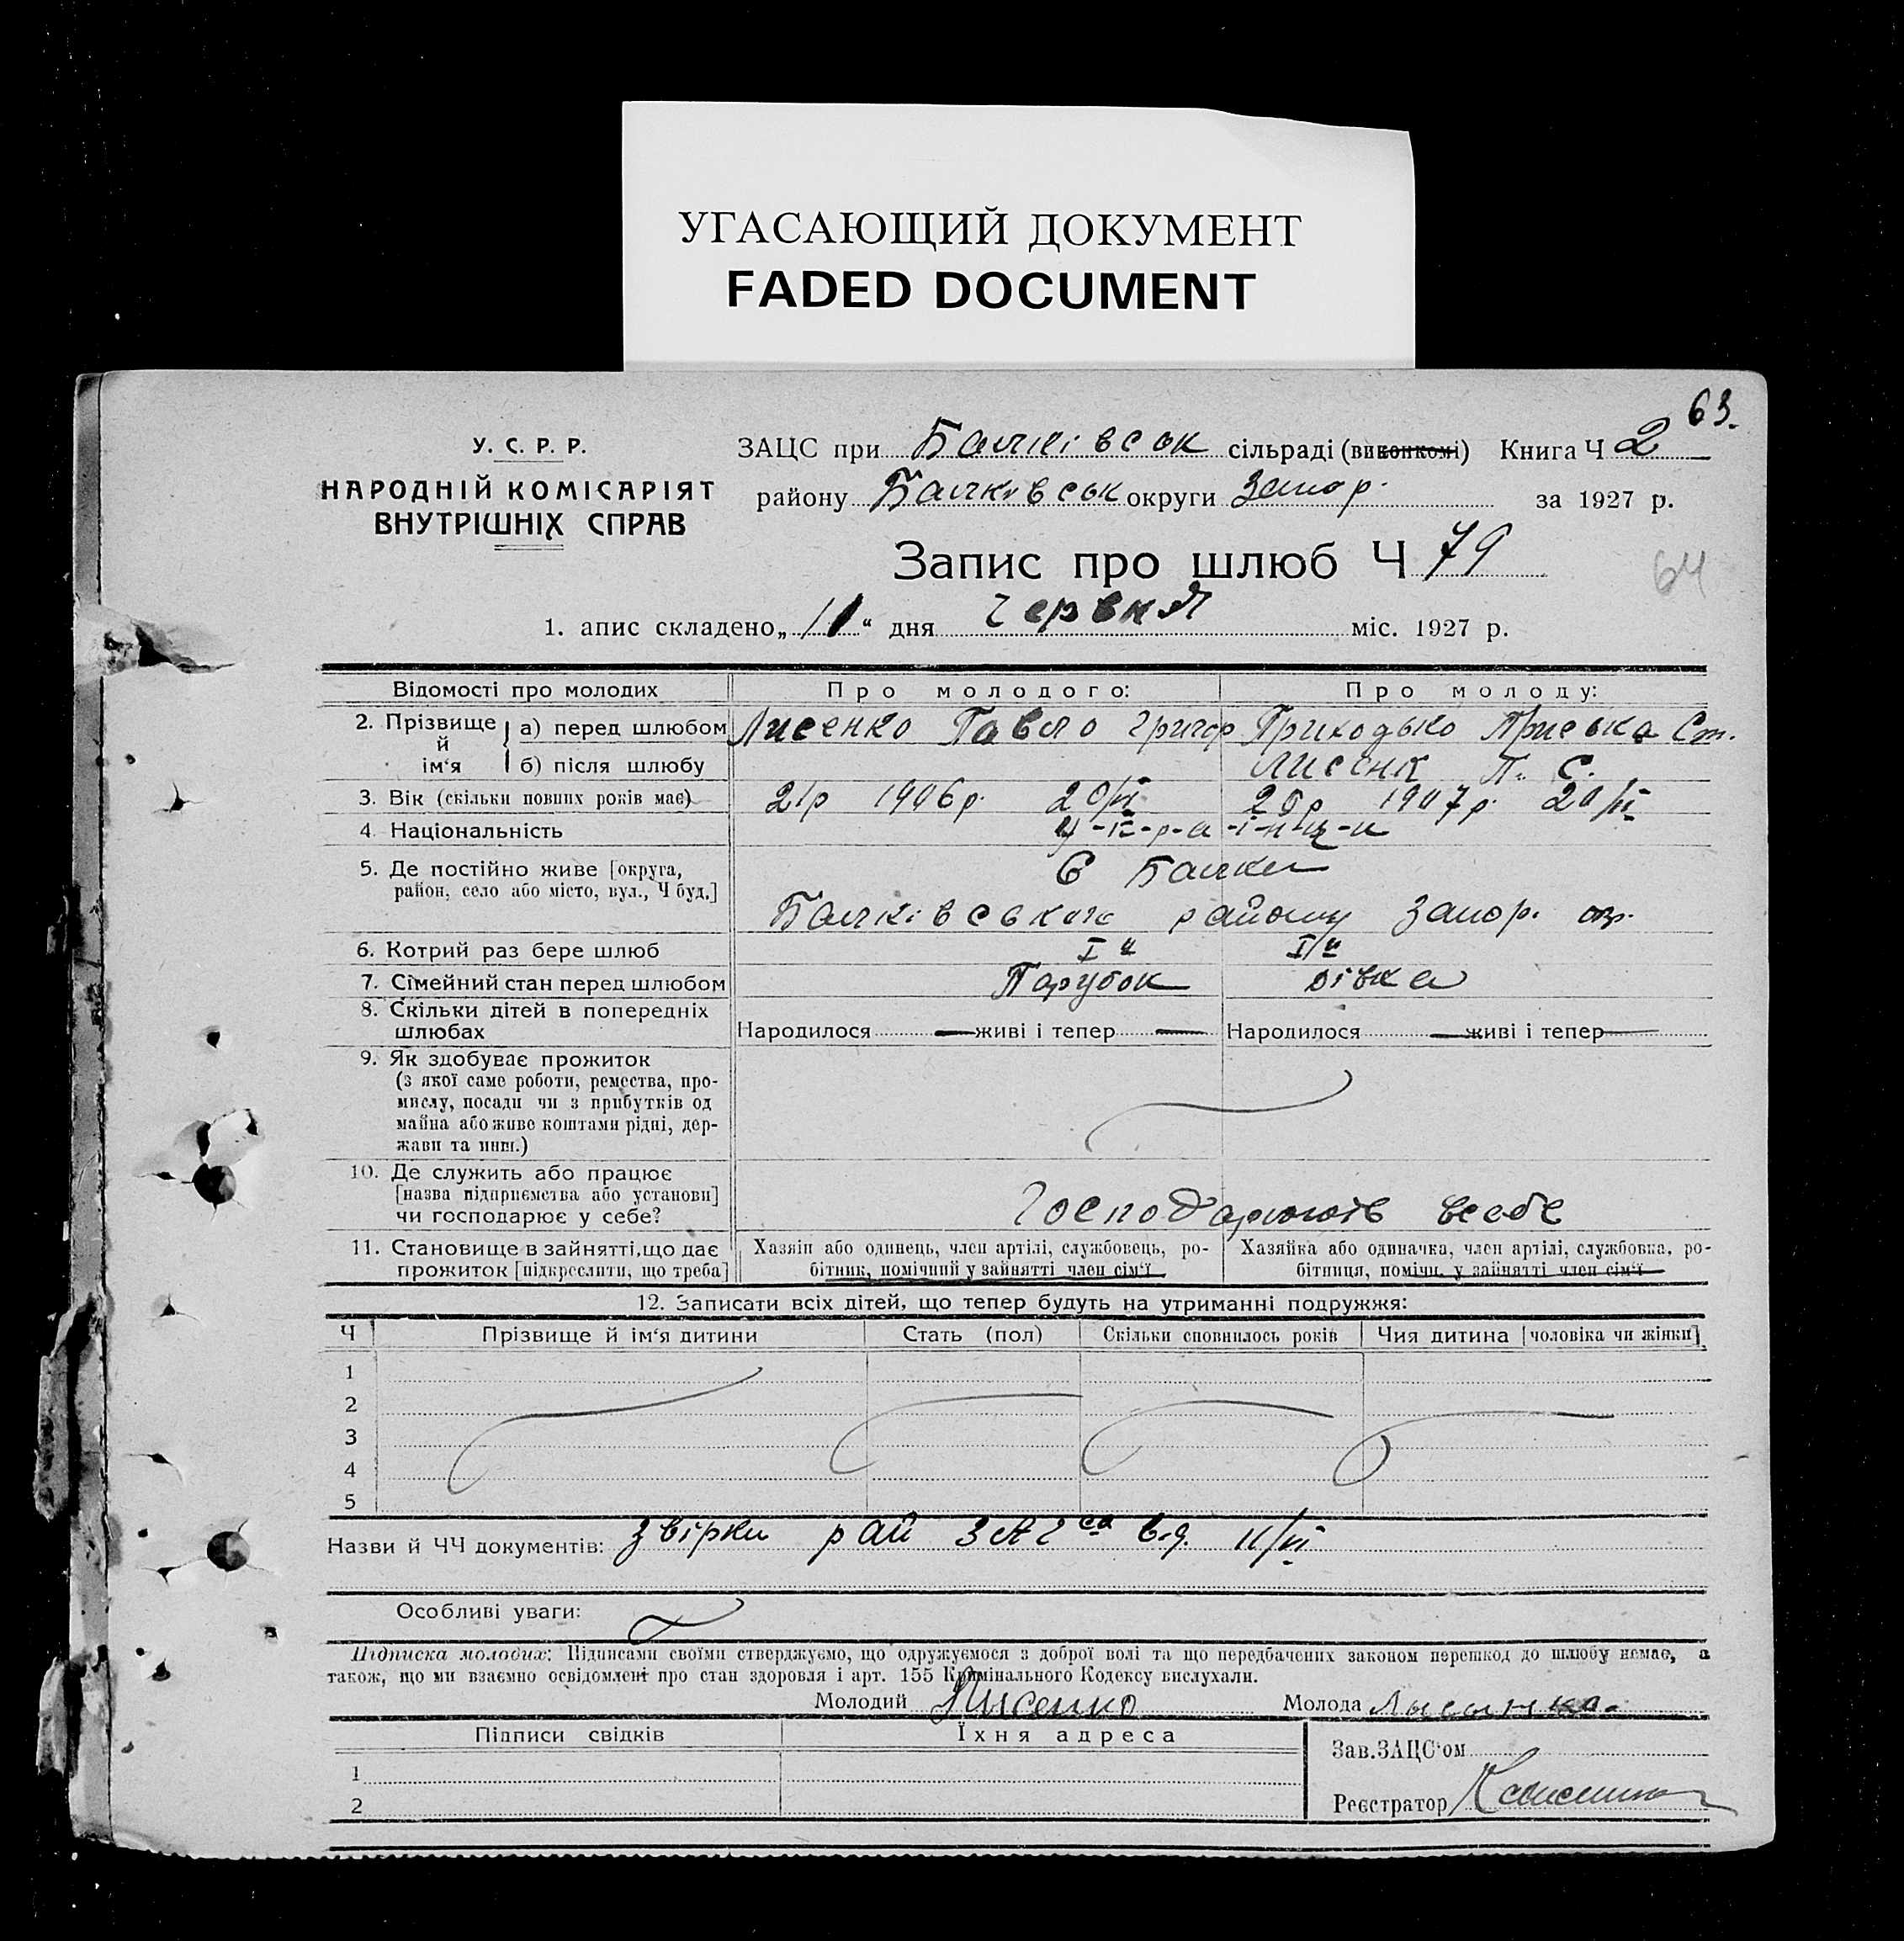 УГАСАЮЩИЙ ДОКУМЕНТ
FADED DOCUMENT
63.
У. С. Р. Р.
НАРОДНІЙ КОМІСАРІЯТ
ВНУТРІШНІХ СПРАВ
ЗАЦС при Балківськ сільраді (виконкомі) Книга Ч 2
району Балківськ округи Запор. за 1927 р.
Запис про шлюб Ч 79
64
1. апис складено „11“ дня червня міс. 1927 р.
Відомості про молодих Про молодого: Про молоду:
2. Прізвище й ім‘я а) перед шлюбом Лисенко Павло Григор Приходько Приська Ст.
б) після шлюбу Лисенк П. С.
3. Вік (скільки повних років має) 21р 1906 р. 20/VI 20р 1907 р. 20/VI
4 Національність у-к-р-а-ї-н-ц-и
5. Де постійно живе [округа, район, село або місто, вул., Ч буд.] С Балки
Балківського району Запор. окр.
6. Котрий раз бере шлюб I й I й
7. Сімейний стан перед шлюбом Парубок дівка
8. Скільки дітей в попередніх шлюбах Народилося — живі і тепер — Народилося — живі і тепер —
9. Як здобуває прожиток
(з якої саме роботи, ремества, про-
мислу, посади чи з прибутків од
майна або живе коштами рідні, дер-
жави та инш.)
10. Де служить або працює
[назва підприємства або установи]
чи господарює у себе? Господарюють в себе
11. Становище в зайнятті, що дає прожиток [підкреслити, що треба]
Хазяін або одинець, член артілі, службовець, ро-
бітник, помічний у зайнятті член сім‘ї
Хазяйка або одиначка, член артілі, службовка, ро-
бітниця, помічн. у зайнятті член сім‘ї
12. Записати всіх дітей, що тепер будуть на утриманні подружжя:
Ч Прізвище й ім‘я дитини Стать (пол) Скільки сповнилось років Чия дитина [чоловіка чи жінки]
1
2
3
4
5
Назви й ЧЧ документів: звірки рай ЗАГса в.д. 11/VI
Особливі уваги:
Підписка молодих: Підписами своїми стверджуємо, що одружуємося з доброї волі та що передбачених законом перешкод до шлюбу немає, а
також, що ми взаємно освідомлені про стан здоровля і арт. 155 Кримінального Кодексу вислухали.
Молодий Лисенко Молода Лысынко.
Підписи свідків Їхня адреса
Зав. ЗАЦС‘ом
1
2
Реєстратор